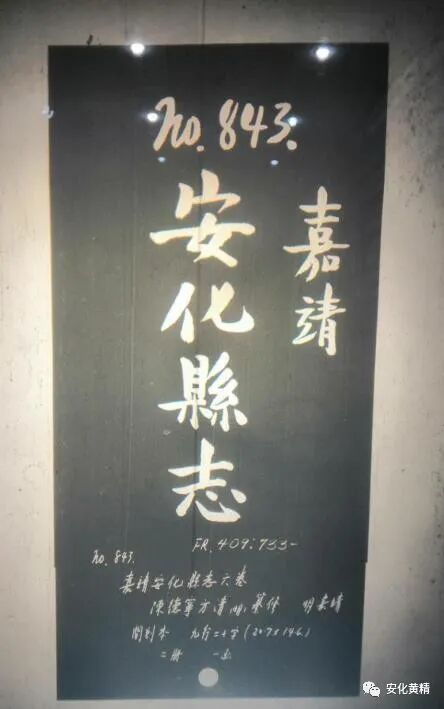 no. 843.
嘉靖
安化縣志
FR. 409:733-
no. 843.
嘉靖安化縣志六卷
陳德寧方清 纂修 明嘉靖
間刻本 九行二十字(20.7x14.6)
二册
安化黄精